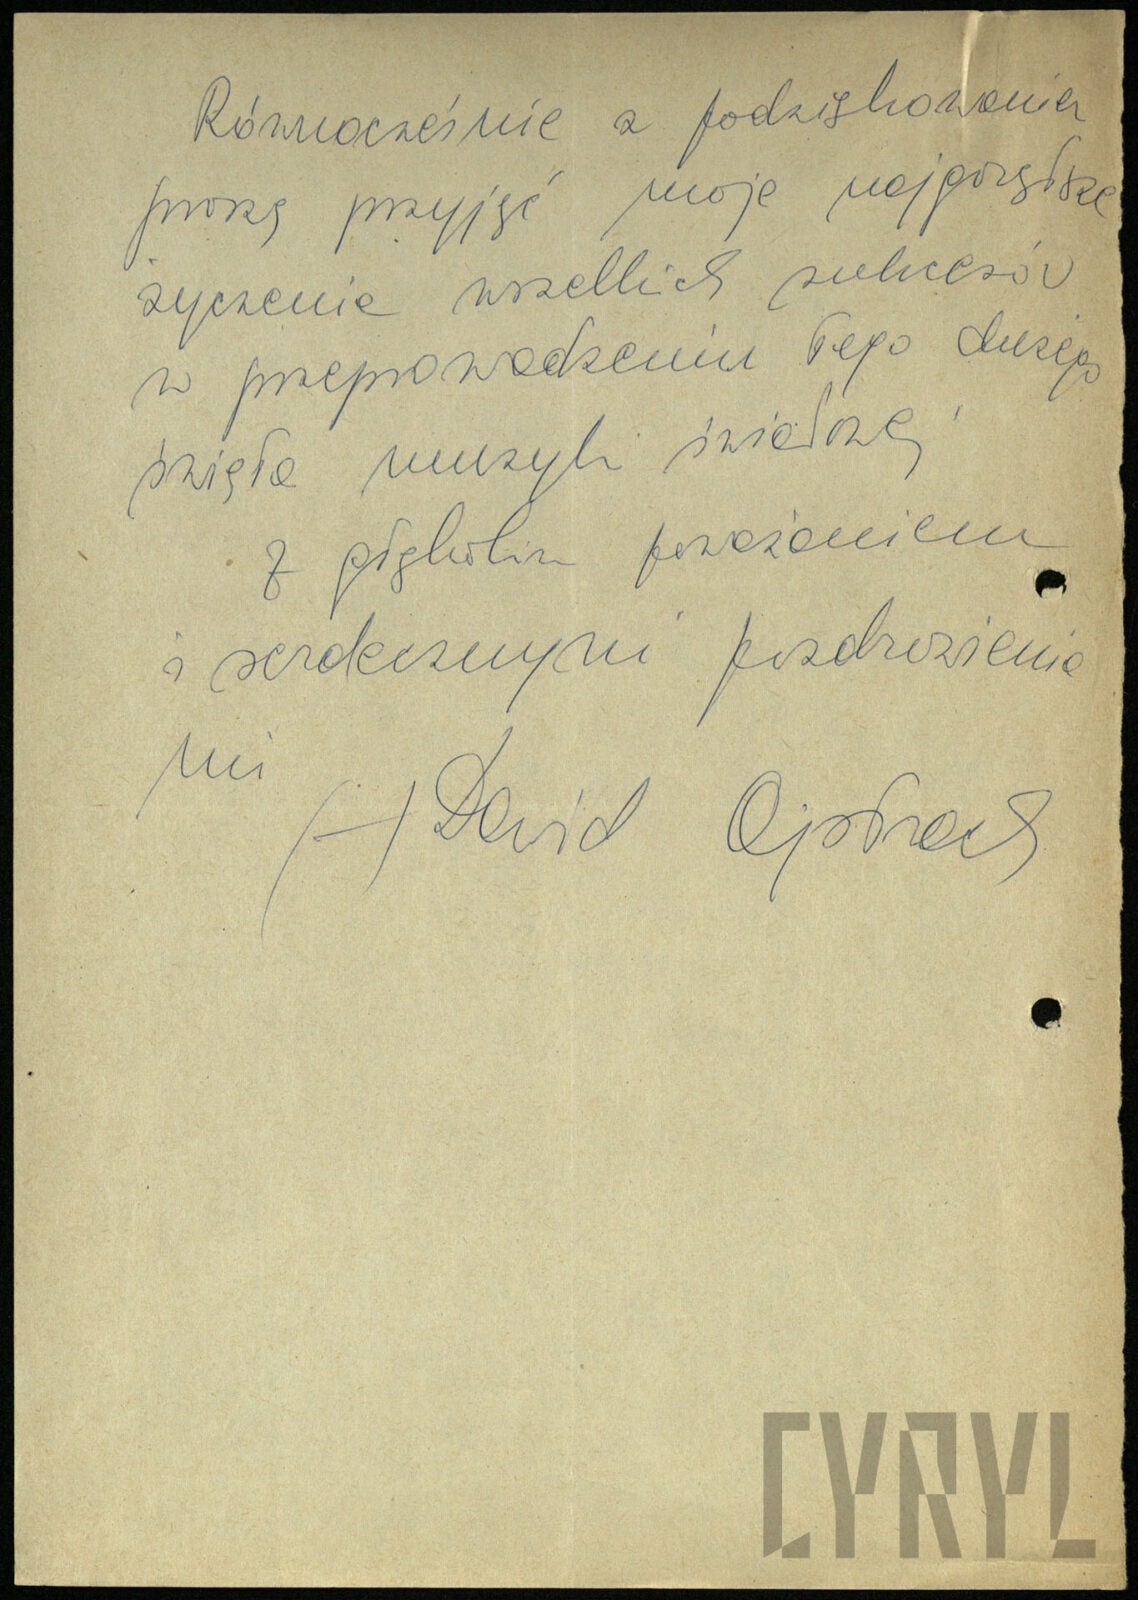 Równocześnie z podziękowaniem
proszę przyjąć moje najgorętsze
życzenia wszelkich sukcesów
w przeprowadzeniu tego dużego
święta muzyki światowej
Z głębokim poważaniem
i serdecznymi pozdrowienia
mi
(—) Dawid Ojstrach
CYRYL